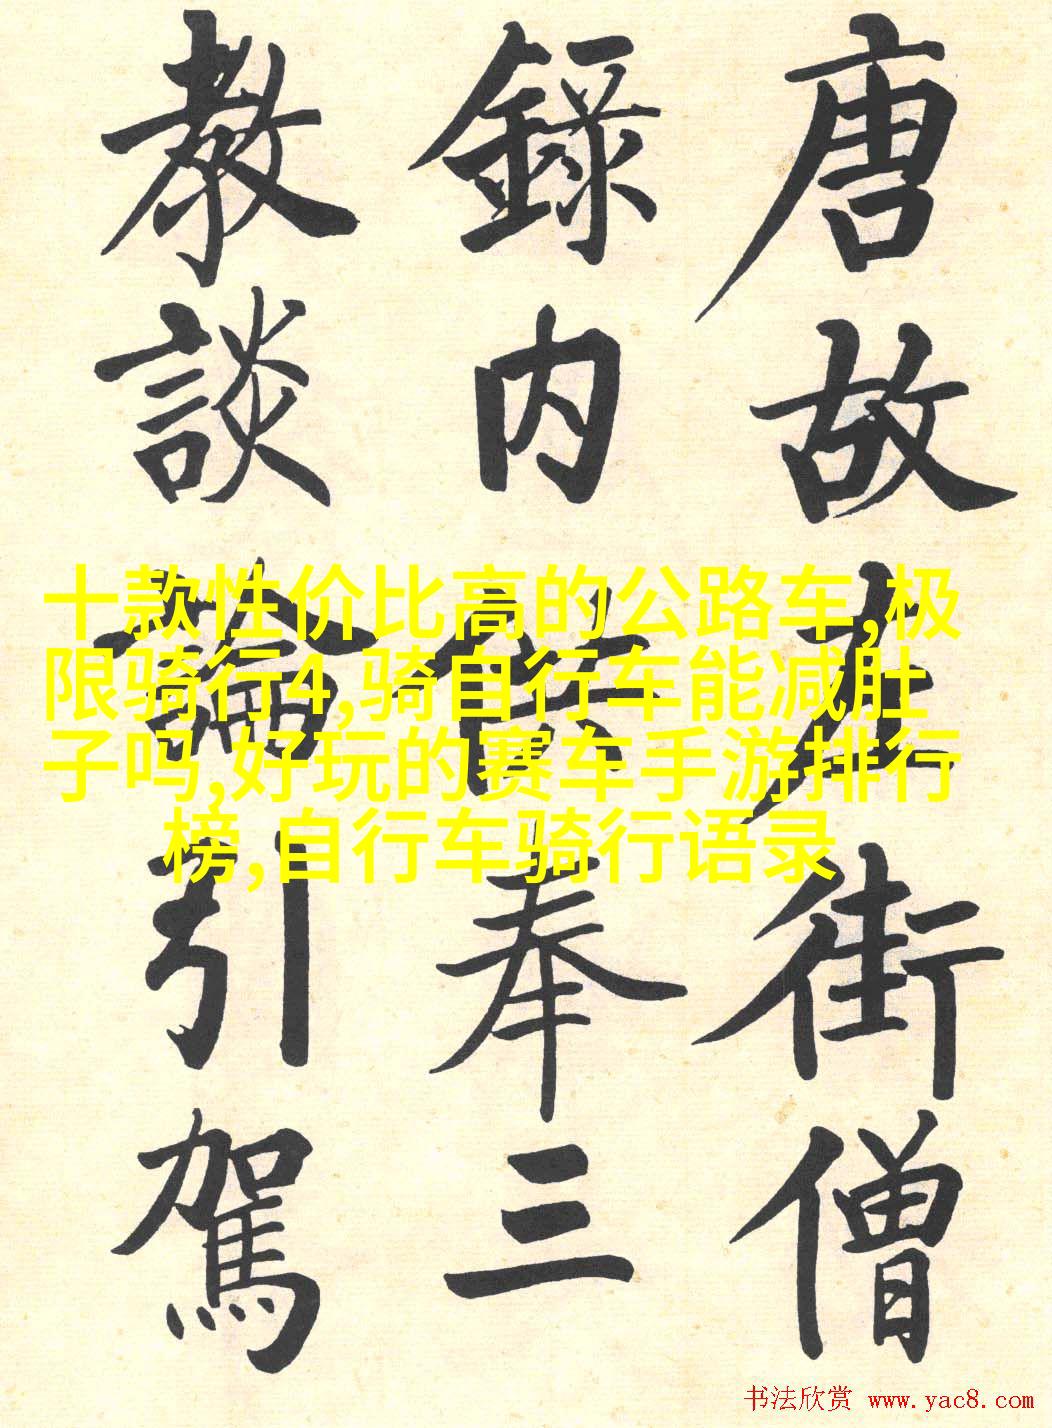 唐故左街僧
錄内供奉三
教談論引駕
十款性价比高的公路车,极
限骑行4,骑自行车能减肚
子吗,好玩的赛车手游排行
榜,自行车骑行语录
书法欣赏 www.yac8.com